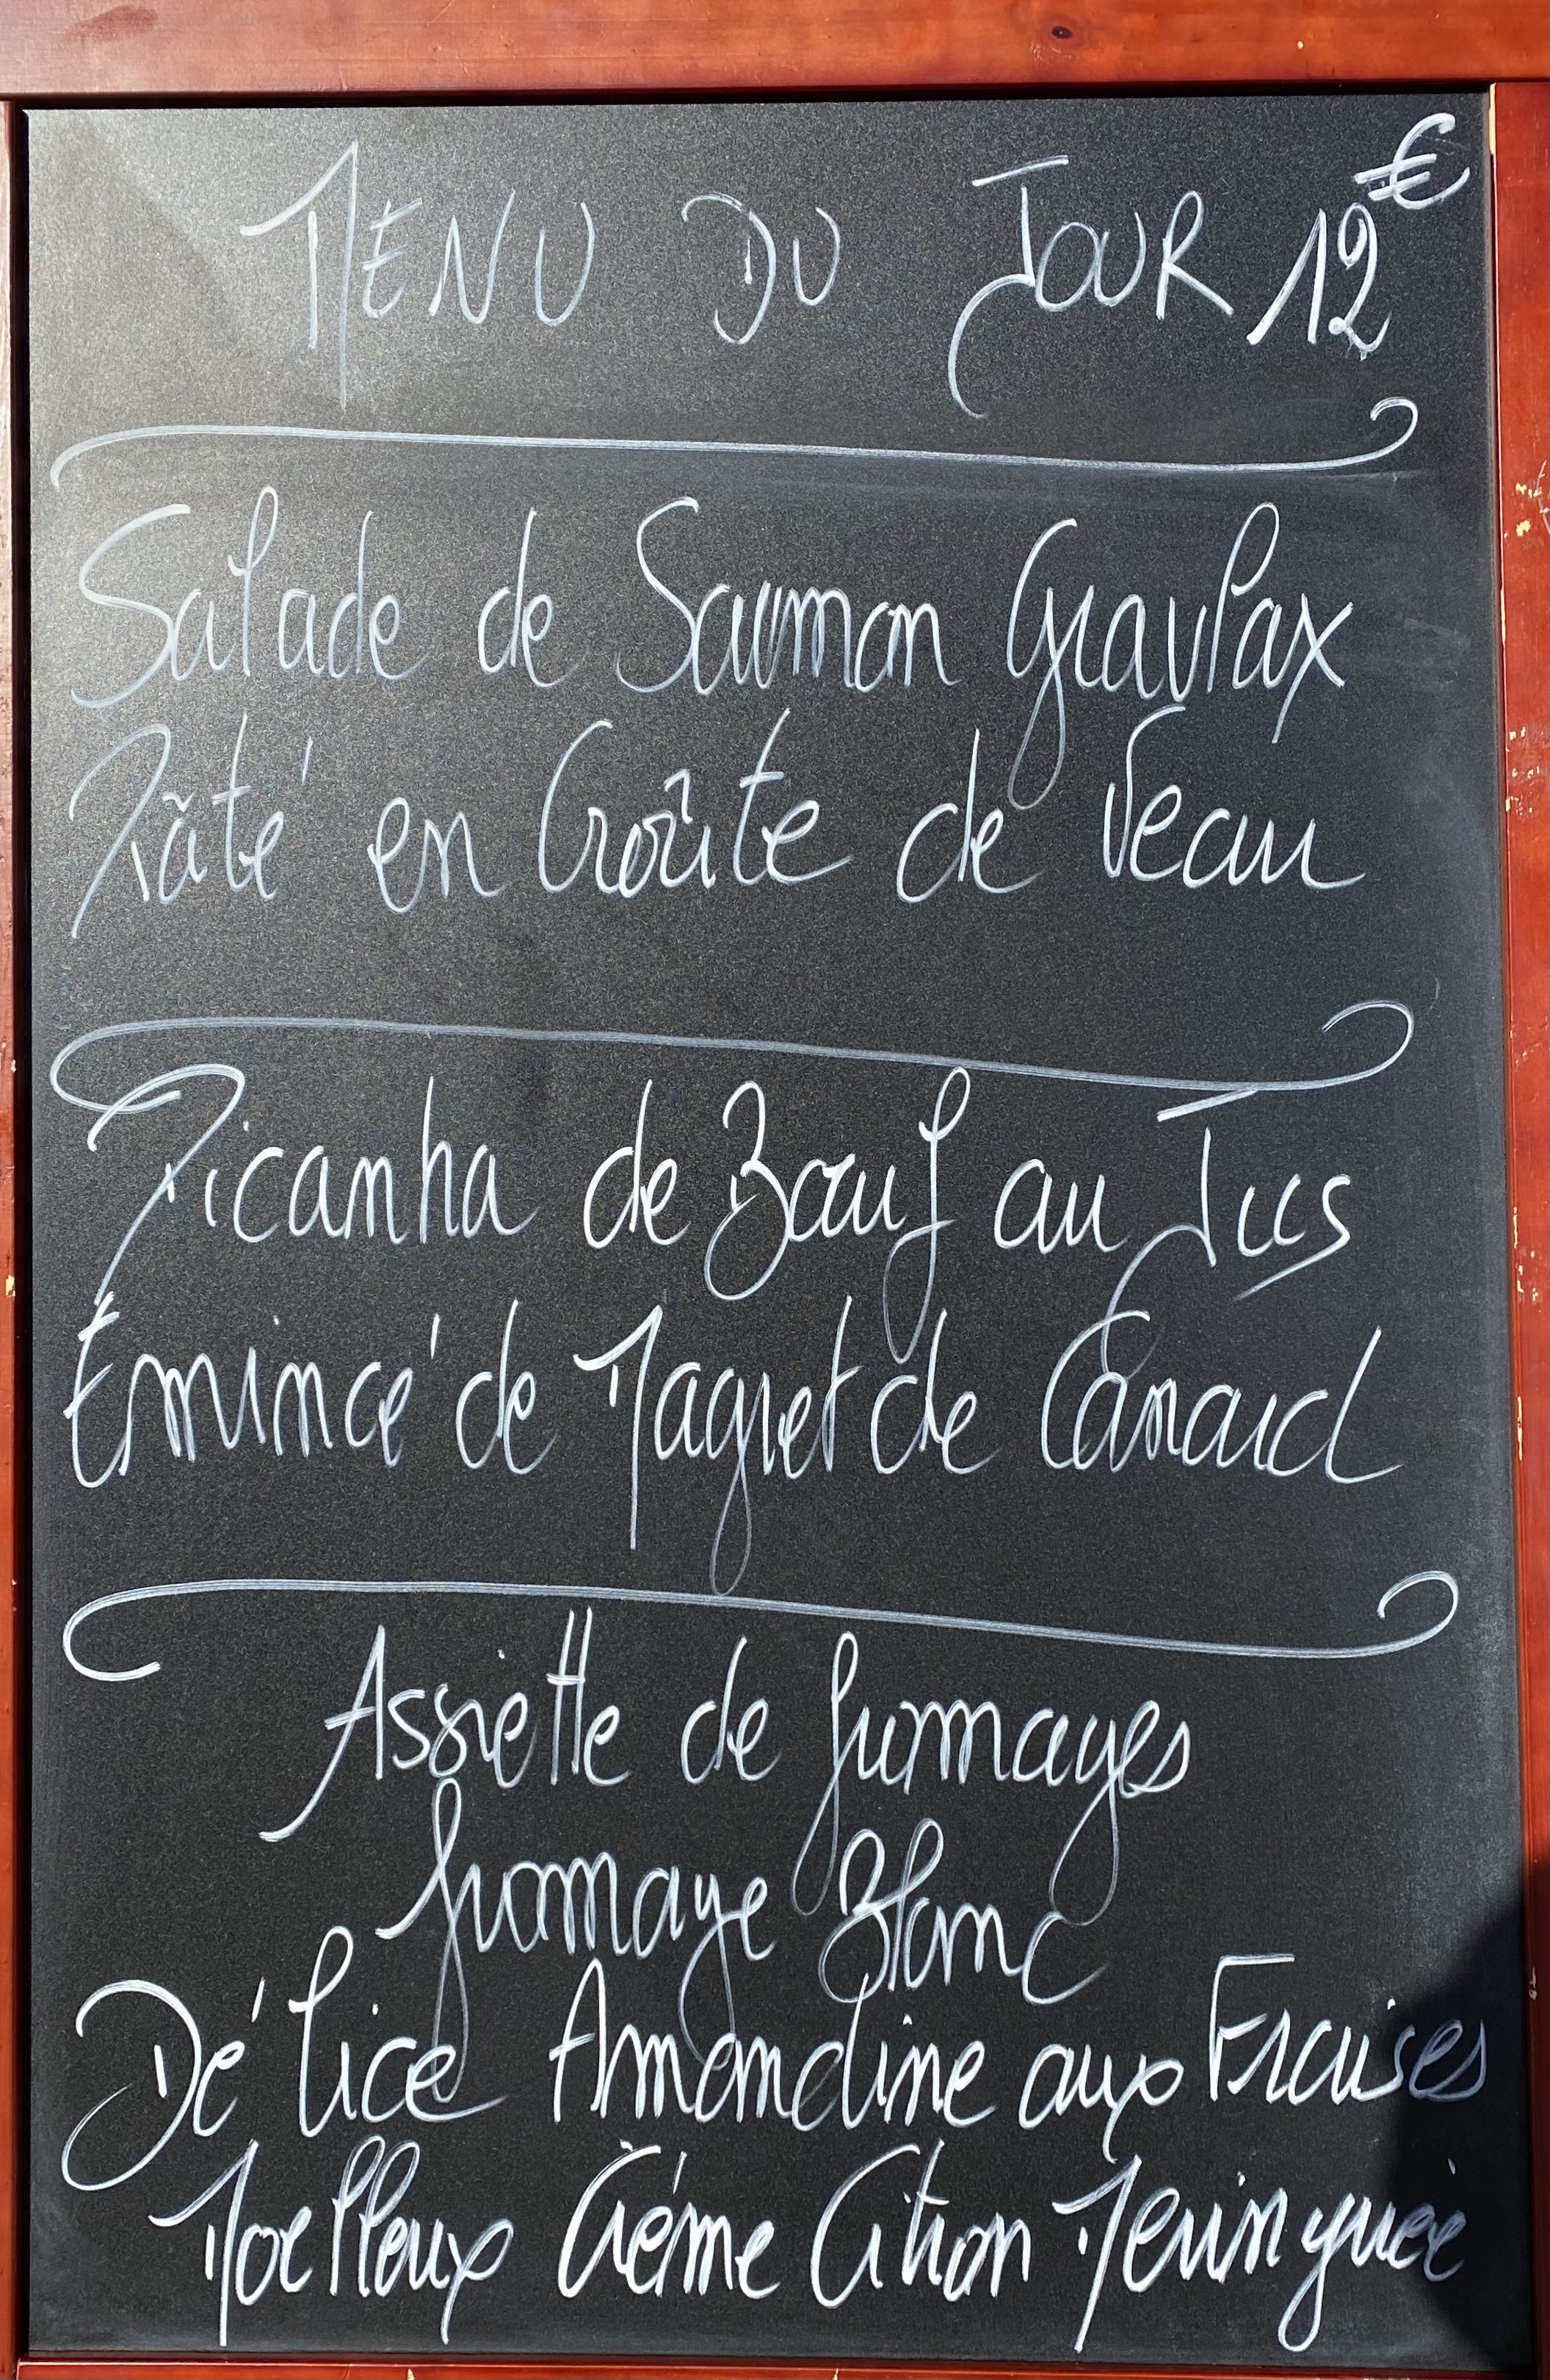 MENU DU JOUR 12€
Salade de Saumon Gravlax
Pâté en Croûte de Veau
Picanha de Bœuf au Jus
Emincé de Magret de Canard
Assiette de fromages
fromage Blanc
Délice Amandine aux Fraises
Moelleux Crème Citron Meringuée